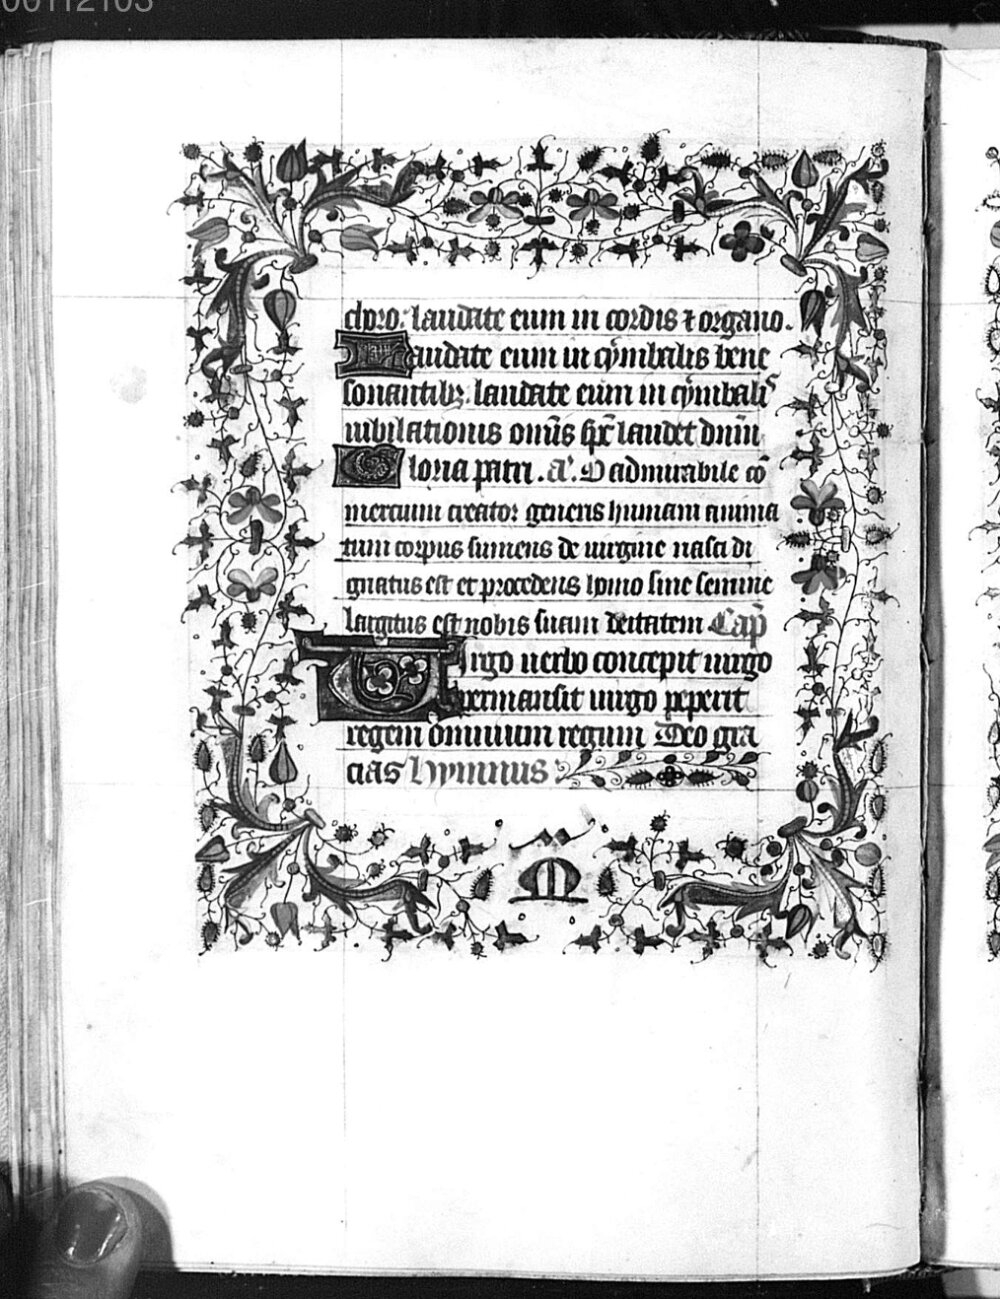 00112103
choro. laudate eum in cordis ⁊ organo.
Laudate eum in cymbalis bene
sonantibꝫ. laudate eum in cymbalis
iubilationis omīs spc̄ laudet dn̄m
Gloria patri. aͥ. O admirabile cō
mercium creator generis humani anima
tum corpus sumens de uirgine nasci di
gnatus est et procedens homo sine semine
largitus est nobis suam deitatem Cap̄
Uirgo uerbo concepit uirgo
permansit uirgo peperit
regem omnium regum Deo gra
cias hymnus
M